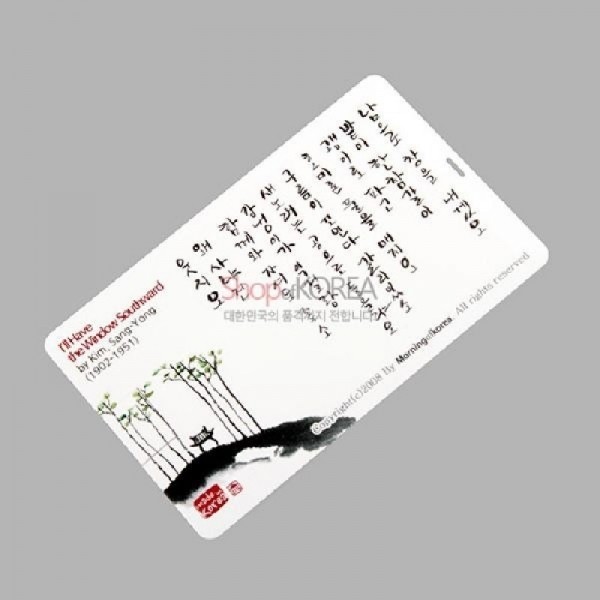 남으로 창을 내겠오
밭이 한참갈이
괭이로 파고
호미론 풀을 매지오
구름이 꼬인다 갈리 있소
새 노래는 공으로 들으랴오
강냉이가 익걸랑
함께 와 자셔도 좋소
왜 사냐건
웃지오
I'll Have
the Window Southward
by Kim, Sang-Yong
(1902-1951)
Shop of KOREA
대한민국의 품격까지 전합니다
Copyright(c)2008 By Morningofkorea. All rights reserved